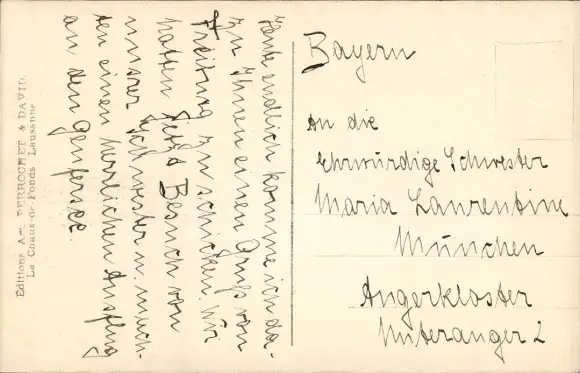 Heute endlich komme ich da-
zu Ihnen einen Gruß von
Freiburg zu schicken. Wir
hatten jetzt Besuch von
unsrer Schwester u. mach-
ten einen herrlichen Ausflug
an den Genfersee.
Bayern
An die
Ehrwürdige Schwester
Maria Laurentine
München
Angerkloster
Unteranger 2
Editions Art. PERROCHET & DAVID
La Chaux-de-Fonds Lausanne